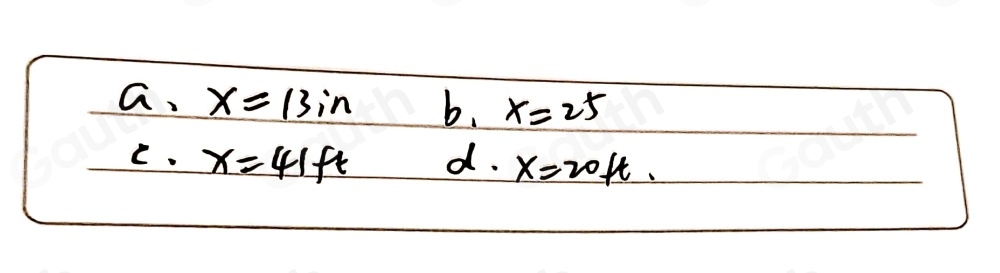 a、x=13in b、x=25
c．x=41ft d．x=20ft．